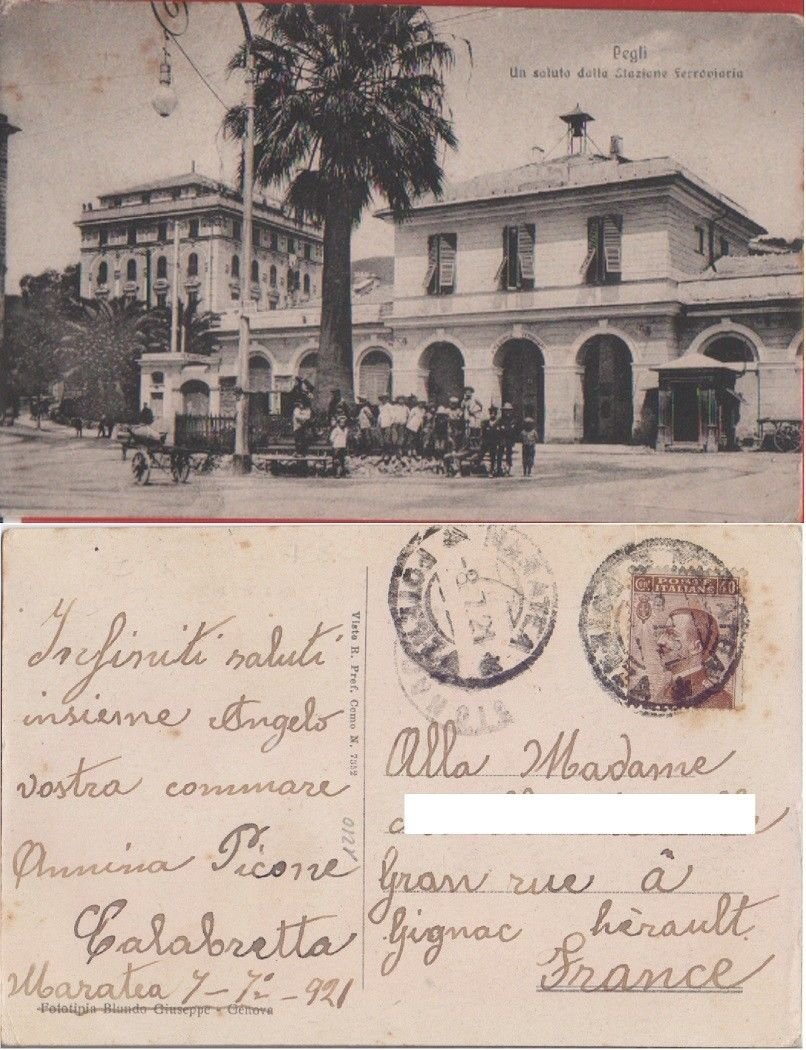 Pegli
Un saluto dalla Stazione Ferroviaria
Infiniti saluti
insieme Angelo
vostra commare
Annina Picone
Calabretta
Maratea 7-7º-921
Fototipia Blundo Giuseppe - Genova
Visto R. Pref. Como N. 7352
0121
MARATEA
-8.7.21
POSTE ITALIANE
Alla Madame
Gran rue â
Gignac hèrault
France